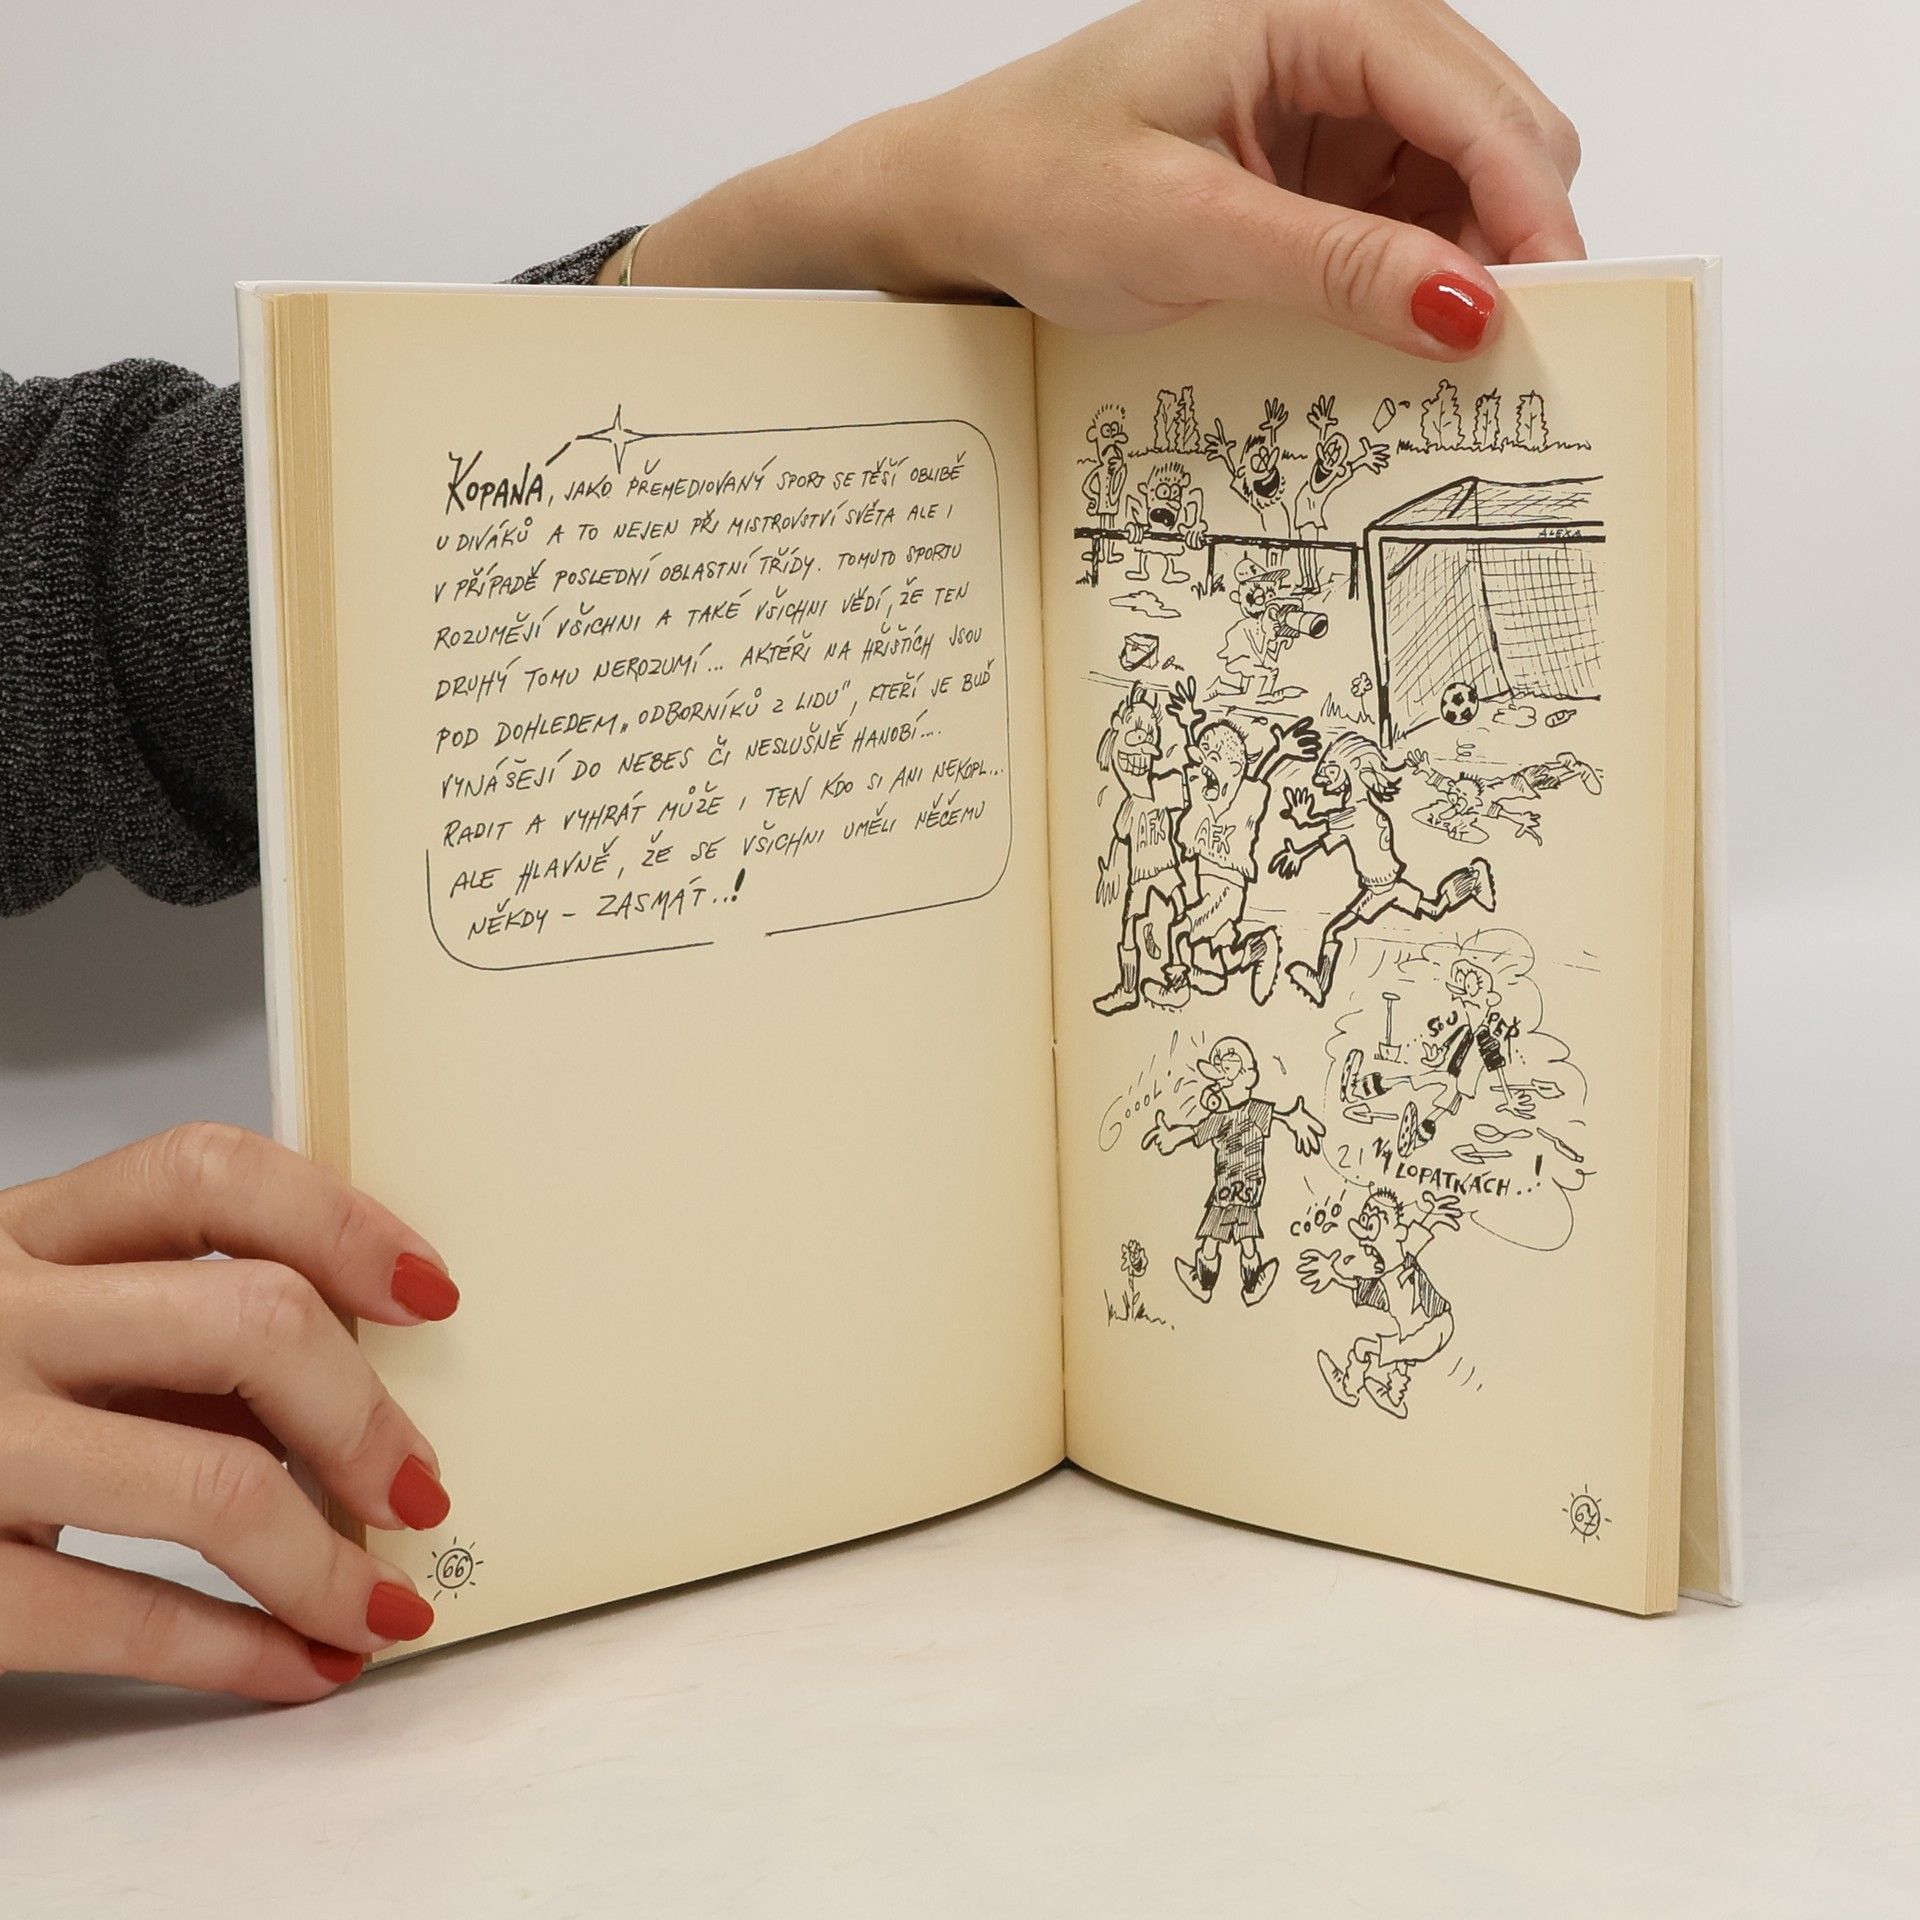 KOPANÁ, JAKO PŘEMEDIOVANÝ SPORT SE TĚŠÍ OBLIBĚ
U DIVÁKŮ A TO NEJEN PŘI MISTROVSTVÍ SVĚTA ALE I
V PŘÍPADĚ POSLEDNÍ OBLASTNÍ TŘÍDY. TOMUTO SPORTU
ROZUMĚJÍ VŠICHNI A TAKÉ VŠICHNI VĚDÍ, ŽE TEN
DRUHÝ TOMU NEROZUMÍ... AKTÉŘI NA HŘIŠTÍCH JSOU
POD DOHLEDEM „ODBORNÍKŮ Z LIDU", KTEŘÍ JE BUĎ
VYNÁŠEJÍ DO NEBES ČI NESLUŠNĚ HANOBÍ....
RADIT A VYHRÁT MŮŽE I TEN KDO SI ANI NEKOPL...
ALE HLAVNĚ, ŽE SE VŠICHNI UMĚLI NĚČEMU
NĚKDY - ZASMÁT..!
66
ALEXA
AFK
AFK
SOU
PEŘ
GÓÓÓL!
2! VY LOPATKÁCH..!
ORS
COOO
67